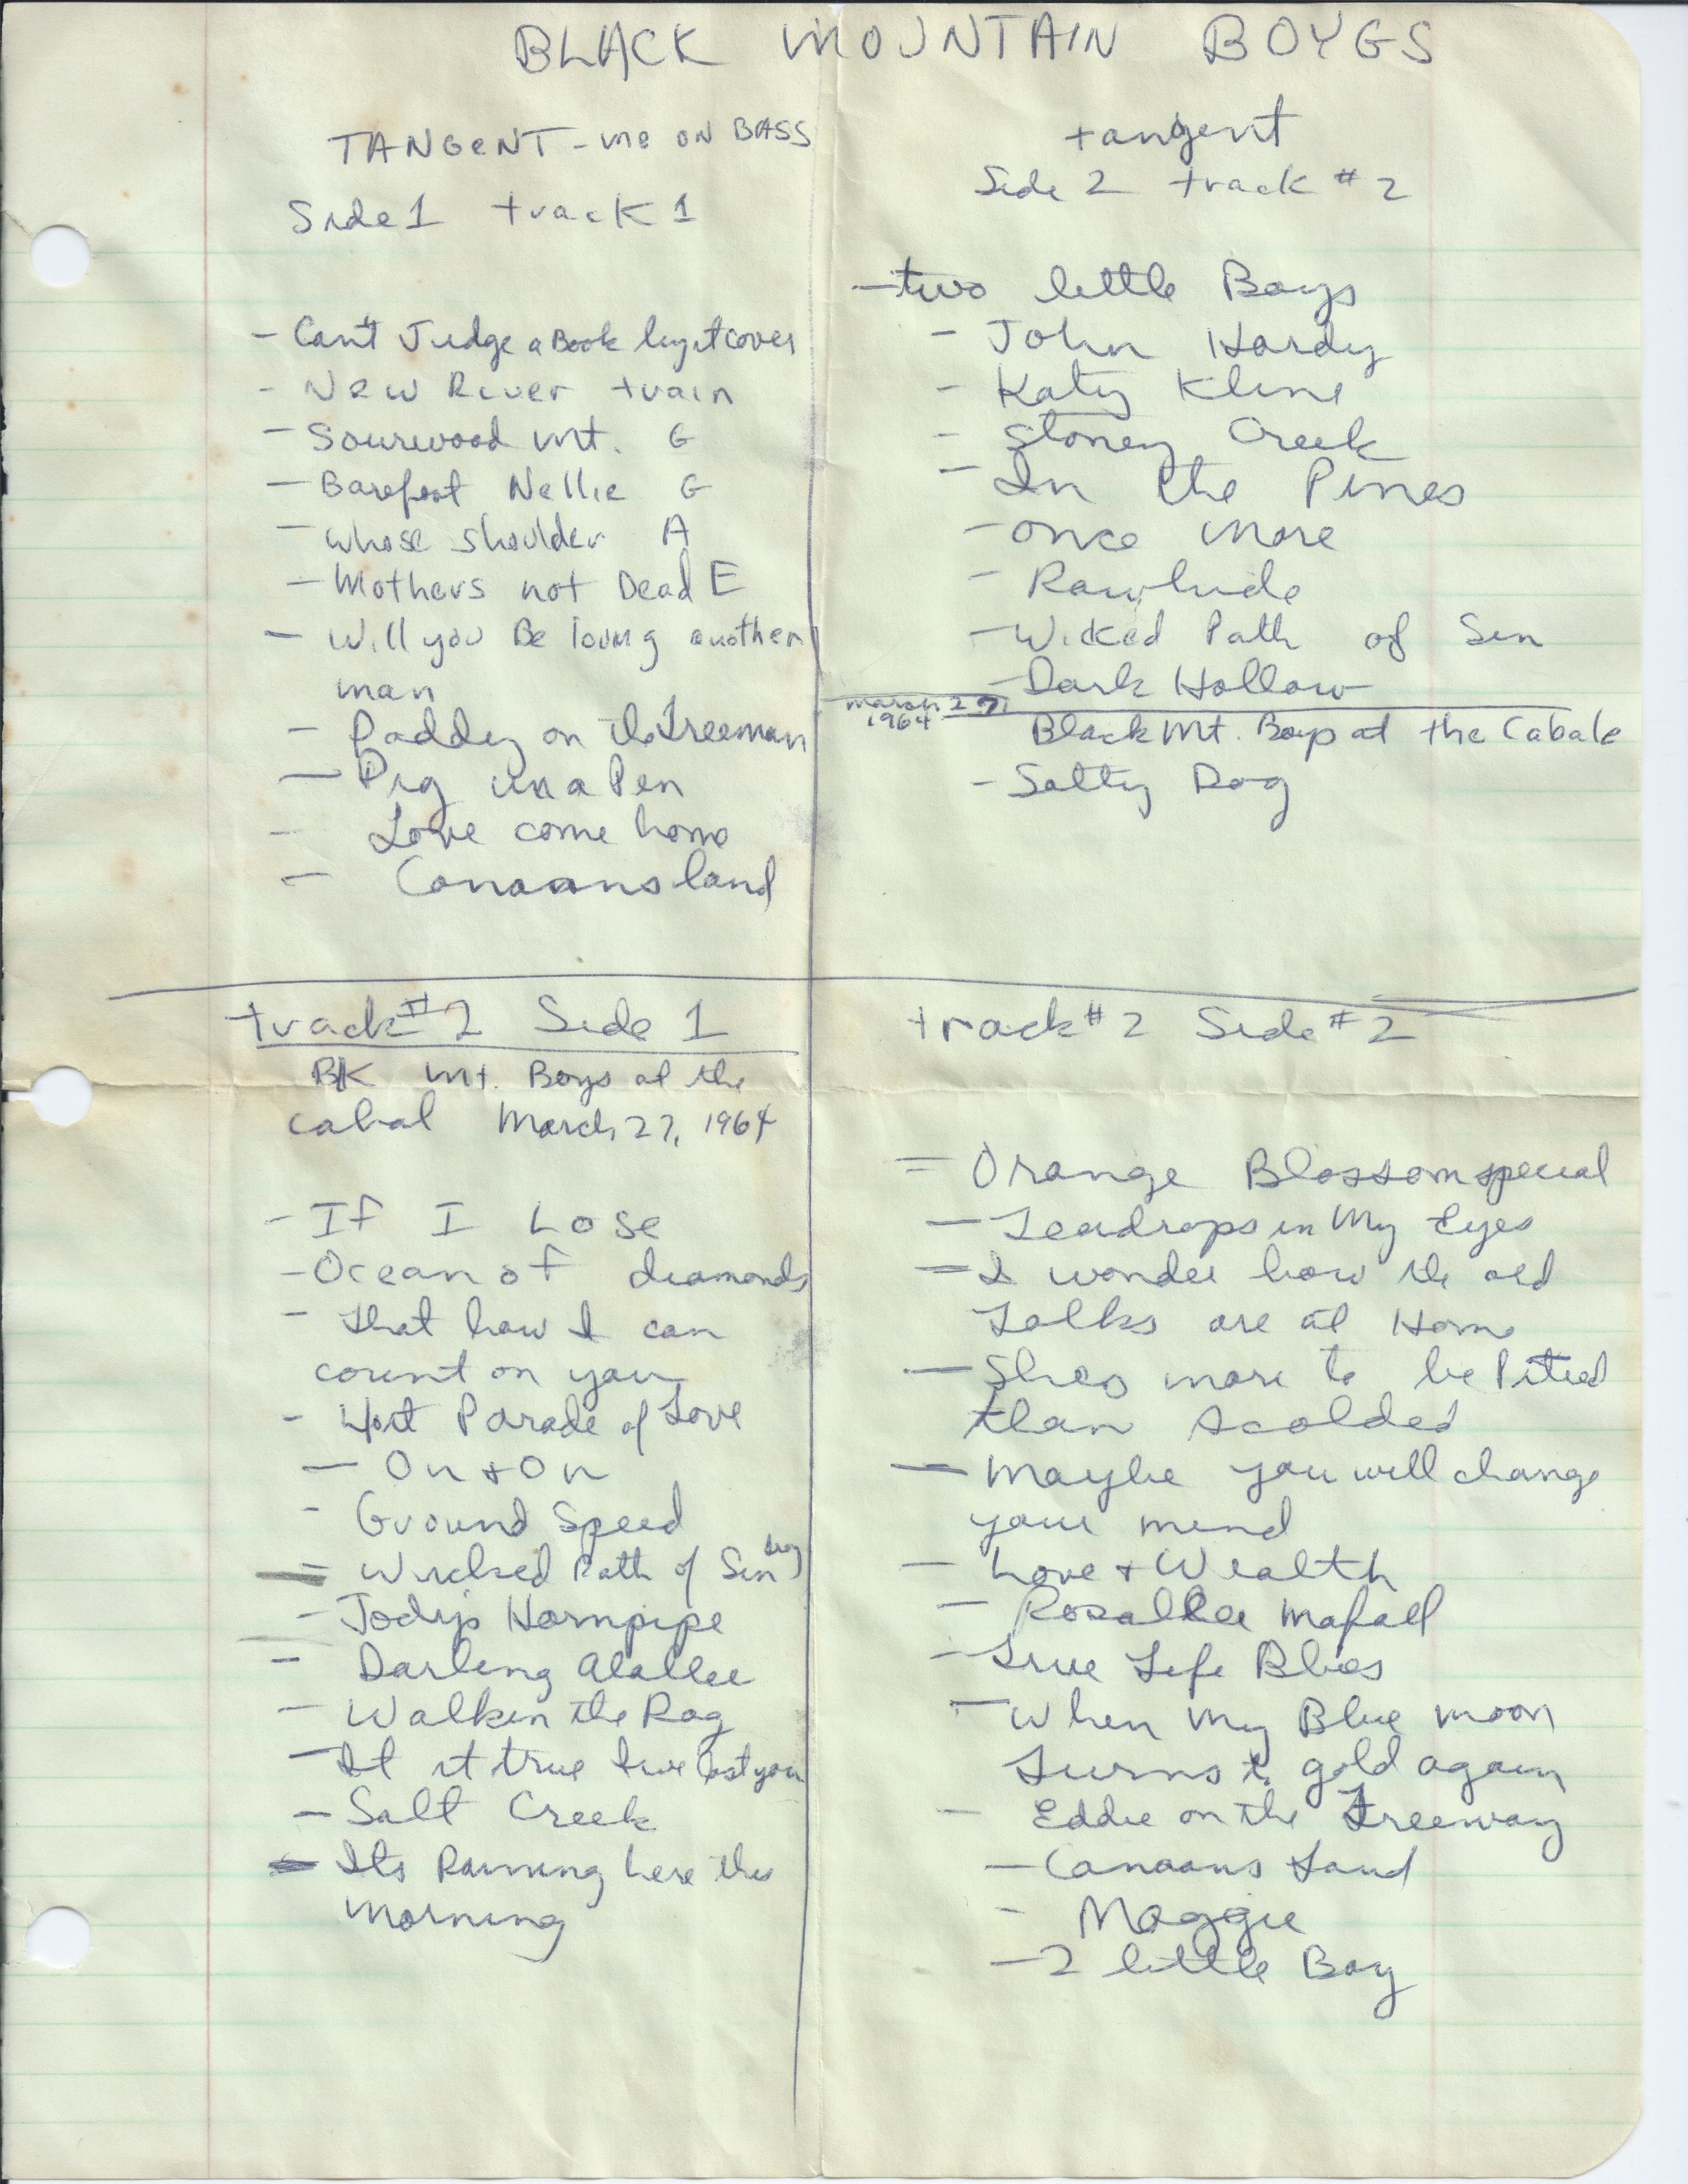 BLACK MOUNTAIN BOYGS
TANGENT - me ON BASS
Side 1 track 1
- Can't Judge a Book by it cover
- New River train
- Sourwood Mt. G
- Barefoot Nellie G
- whose shoulder A
- Mothers not Dead E
- Will you Be loving another
man
- Paddey on the Freeman
- Pig in a Pen
- Love come home
- Canaans land
tangent
Side 2 track # 2
- two little Boys
- John Hardy
- Katy Kline
- Stoney Creek
- In the Pines
- once more
- Rawhide
- Wicked Path of Sin
- Dark Hollow
march 27,
1964
Black Mt. Boys at the Cabale
- Salty Dog
track #2 Side 1
BK Mt. Boys at the
Cabal March 27, 1964
- If I Lose
- Ocean of diamonds
- that how I can
count on you
- Hit Parade of Love
- On + On
- Ground Speed
- Wicked Path of Sin
- Jodys Hornpipe
- Darling Alallee
- Walkin the Rag
- It it true Ive lost you
- Salt Creek
- Its Raining here this
morning
track #2 Side #2
= Orange Blossom special
- Teardrops in My Eyes
= I wonder how the old
folks are at Home
- Shes more to be Pitied
than scolded
- Maybe you will change
your mind
- Love + Wealth
- Rosallee Mafall
- True Life Blues
- When My Blue moon
turns to gold again
- Eddie on the Freeway
- Canaans Land
- Maggie
- 2 little Boy